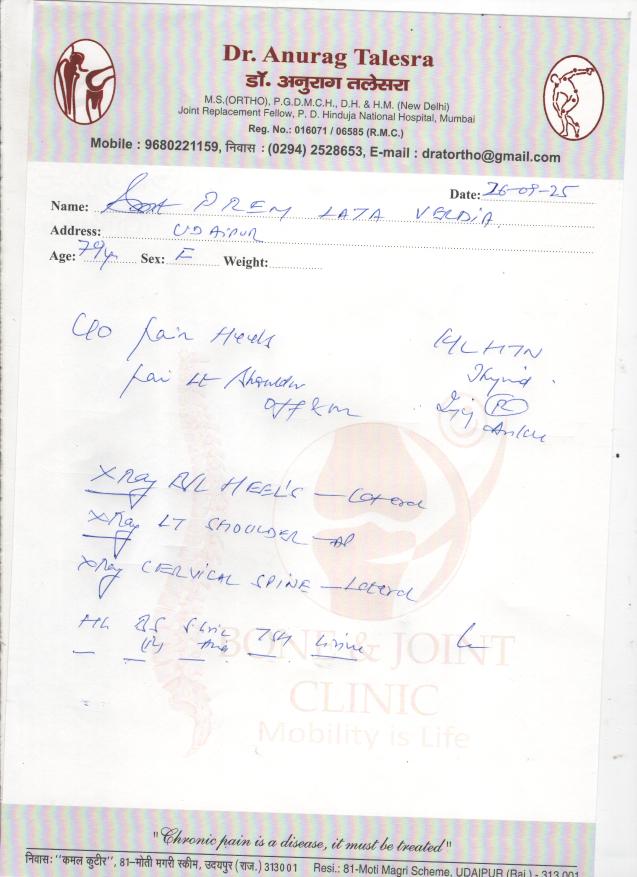 Dr. Anurag Talesra
डॉ. अनुराग तलेसरा
M.S.(ORTHO), P.G.D.M.C.H., D.H. & H.M. (New Delhi)
Joint Replacement Fellow, P. D. Hinduja National Hospital, Mumbai
Reg. No.: 016071 / 06585 (R.M.C.)
Mobile : 9680221159, निवास : (0294) 2528653, E-mail : dratortho@gmail.com
Date: 26-09-25
Name: PREM LATA VERDIA
Address: UDAIPUR
Age: 79y Sex: F Weight:
C/O Pain Heels
Pain Lt Shoulder
Off & on
HTN
Thyroid
Inj
Ankle
X-Ray B/L HEEL'S - Lateral
X-Ray LT SHOULDER - AP
X-Ray CERVICAL SPINE - Lateral
TSH Urine
BONE & JOINT
CLINIC
Mobility is Life
"Chronic pain is a disease, it must be treated"
निवास: "कमल कुटीर", 81-मोती मगरी स्कीम, उदयपुर (राज.) 313001 Resi.: 81-Moti Magri Scheme, UDAIPUR (Raj.) - 313 001